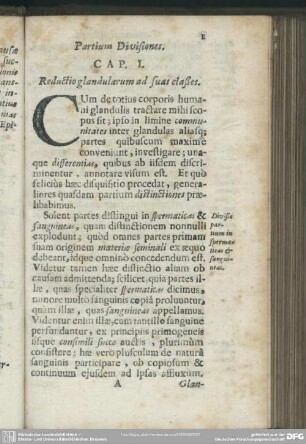 I
Partium Divisiones.
CAP. I.
Reductio glandularum ad suas classes.
CUm de totius corporis huma-
ni glandulis tractare mihi sco-
pus sit; ipso in limine commu-
nitates inter glandulas aliasq;
partes quibuscum maximè
conveniunt, investigare; una-
que differentias, quibus ab iisdem discri-
minentur, annotare visum est. Et quò
feliciùs hæc disquisitio procedat, genera-
liores quasdam partium distinctiones præ-
libabimus.
Solent partes distingui in spermaticas &
sanguineas, quam distinctionem nonnulli
explodunt; quòd omnes partes primam
suam originem materiæ seminali ex æquo
debeant, idque omnino concedendum est.
Videtur tamen hæc distinctio aliam ob
causam admittenda; scilicet, quia partes il-
læ, quas specialiter spermaticas dicimus,
minore multo sanguinis copiâ proluuntur,
quàm illæ, quas sanguineas appellamus.
Videntur enim illæ, cum tantillo sanguine
perfundantur, ex principiis primogeneis
iisque consimili succo auctis, plurimùm
consistere; hæ vero plusculum de naturâ
sanguinis participare, ob copiosum &
continuum ejusdem ad ipsas affluxum.
Divisio
par-
tium in
sperma-
ticas &
sangui-
neas.
A
Glan-